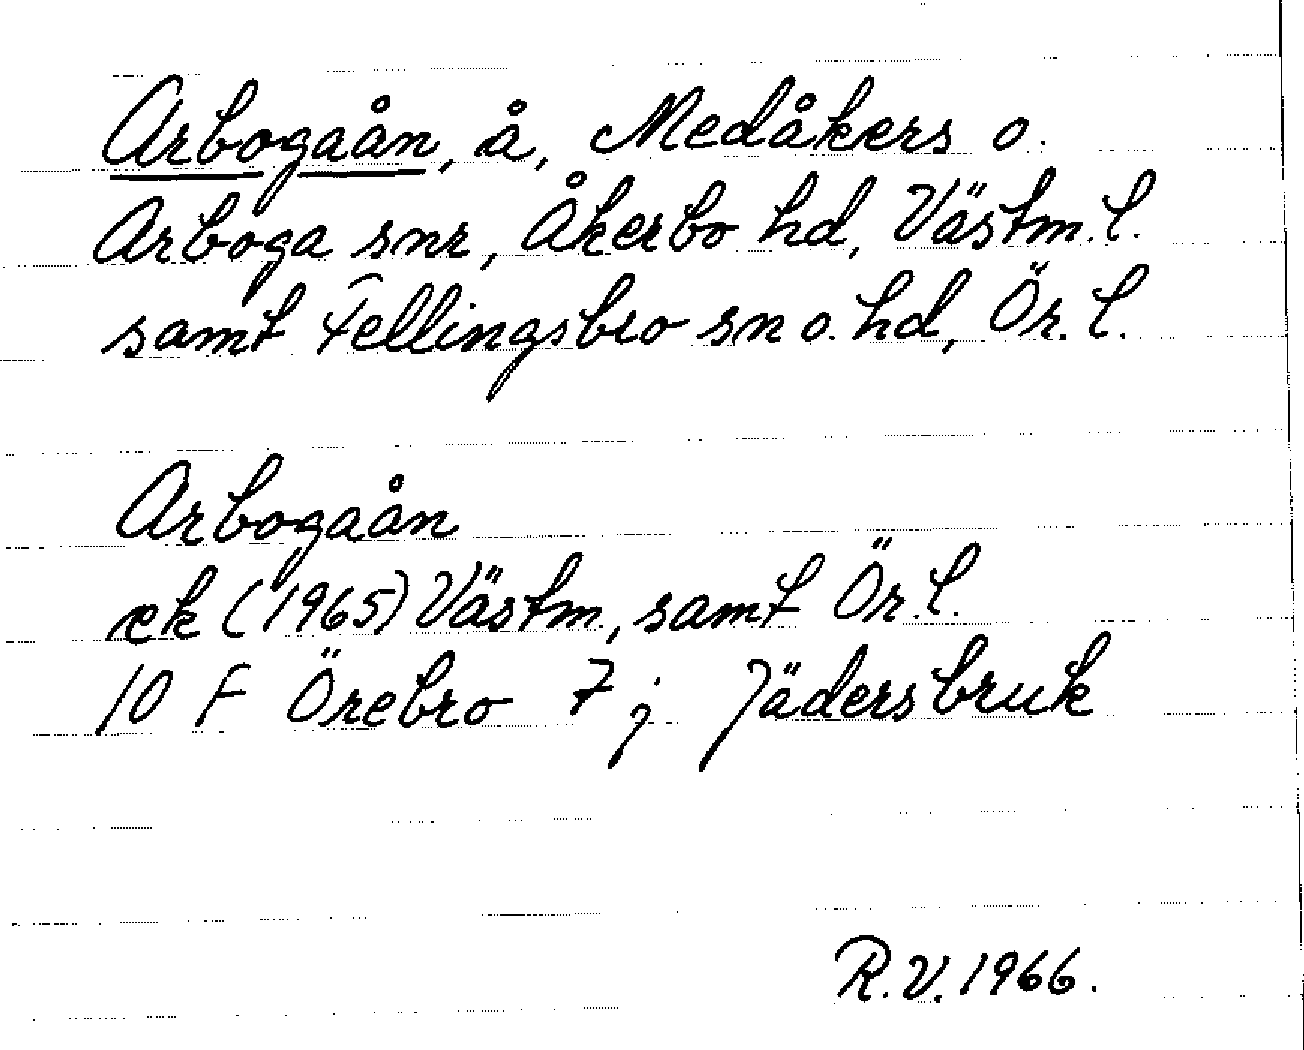 Arbogaån, å, Medåkers o.
Arboga snr, Åkerbo hd, Västm. l.
samt Fellingsbro sn o. hd, Ör. l.
Arbogaån
ek (1965) Västm, samt Ör. l.
10 F Örebro 7 j Jädersbruk
R.V. 1966.